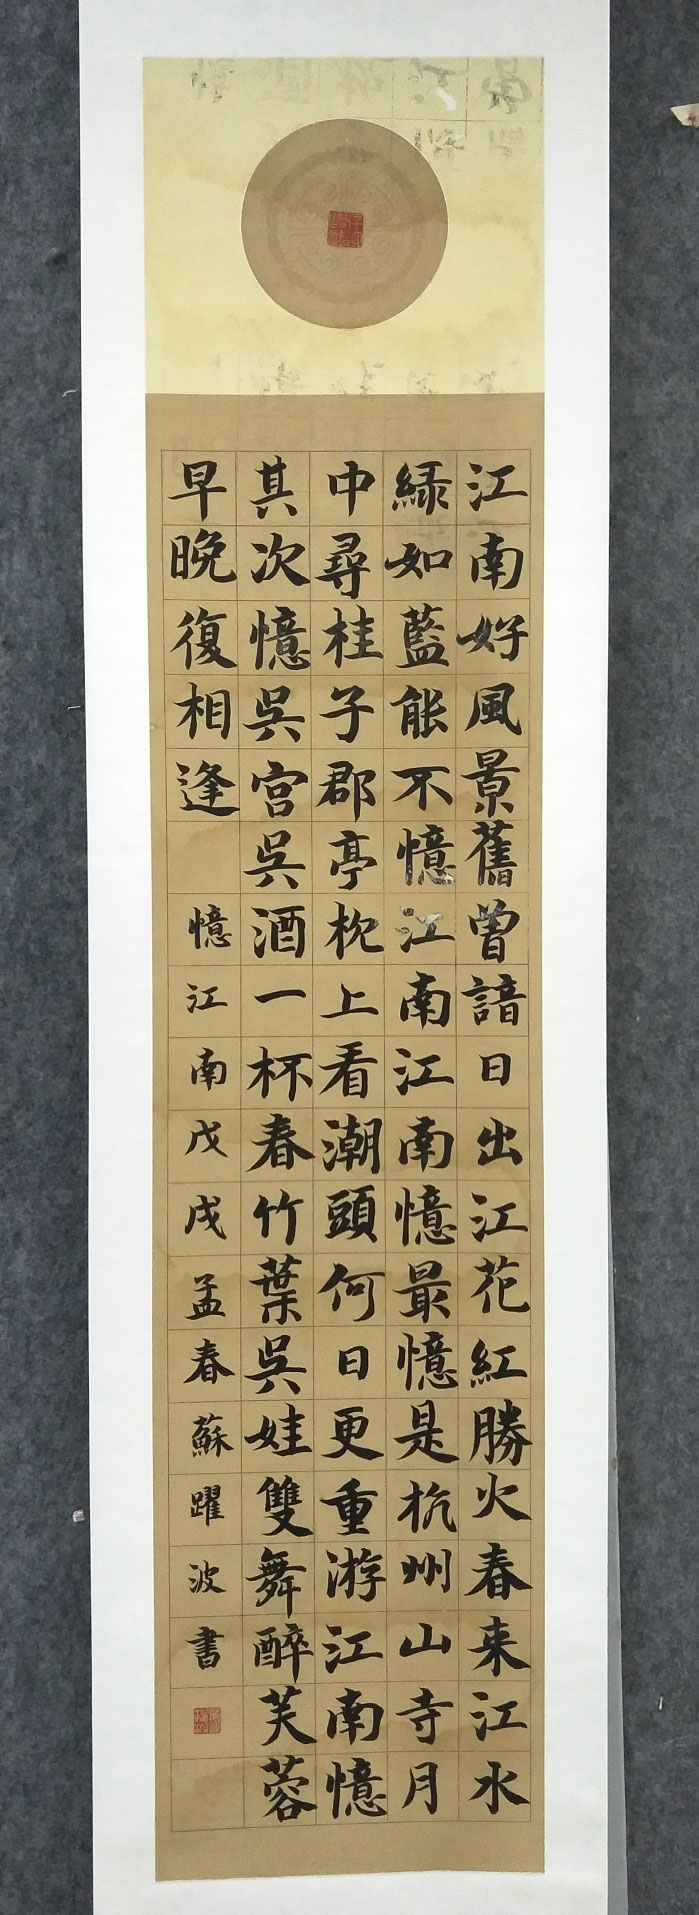 江南好風景舊曾諳日出江花紅勝火春来江水
緑如藍能不憶江南江南憶最憶是杭州山寺月
中尋桂子郡亭枕上看潮頭何日更重游江南憶
其次憶吳宫吳酒一杯春竹葉吳娃雙舞醉芙蓉
早晚復相逢
憶江南戊戌孟春蘇躍波書